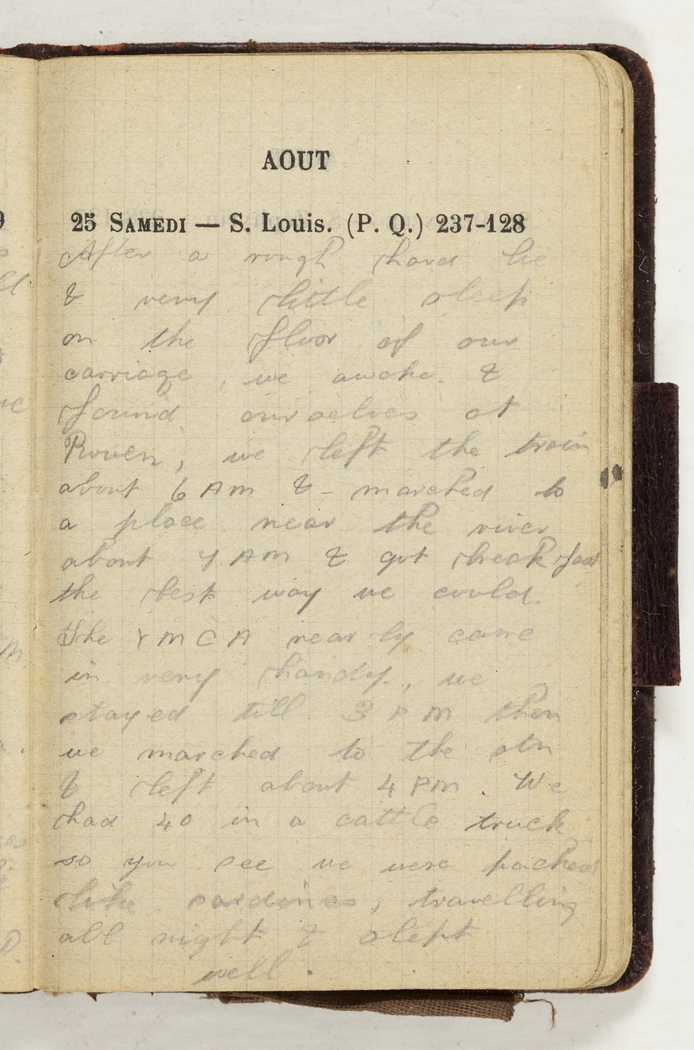 AOUT
25 SAMEDI — S. Louis. (P. Q.) 237-128
After a rough hard lie
& very little sleep
on the floor of our
carriage, we awoke. &
found ourselves at
Rouen, we left the train
about 6 AM & marched to
a place near the river
about 7 AM & got breakfast
the best way we could.
The YMCA nearly came
in very handy, we
stayed till 3 PM then
we marched to the stn
& left about 4 PM. We
had 40 in a cattle truck
so you see we were packed
like sardines, travelling
all night & slept
well.